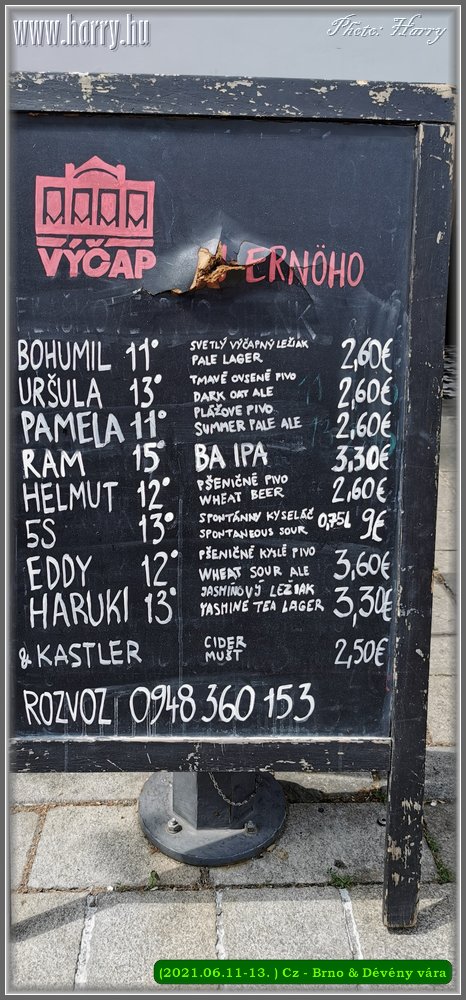 www.harry.hu
Photo: Harry
VÝČAP
ERNÖHO
BOHUMIL 11° SVETLÝ VÝČAPNÝ LEŽIAK PALE LAGER 2,60€
URŠULA 13° TMAVÉ OVSENÉ PIVO DARK OAT ALE 2,60€
PAMELA 11° PLÁŽOVÉ PIVO SUMMER PALE ALE 2,60€
RAM 15° BA IPA 3,30€
HELMUT 12° PŠENIČNÉ PIVO WHEAT BEER 2,60€
5S 13° SPONTÁNNY KYSELÁČ SPONTANEOUS SOUR 0,75L 9€
EDDY 12° PŠENIČNÉ KYSLÉ PIVO WHEAT SOUR ALE 3,60€
HARUKI 13° JASMÍNOVÝ LEŽIAK YASMINE TEA LAGER 3,30€
& KASTLER CIDER MUŠT 2,50€
ROZVOZ 0948 360 153
(2021.06.11-13. ) Cz - Brno & Dévény vára